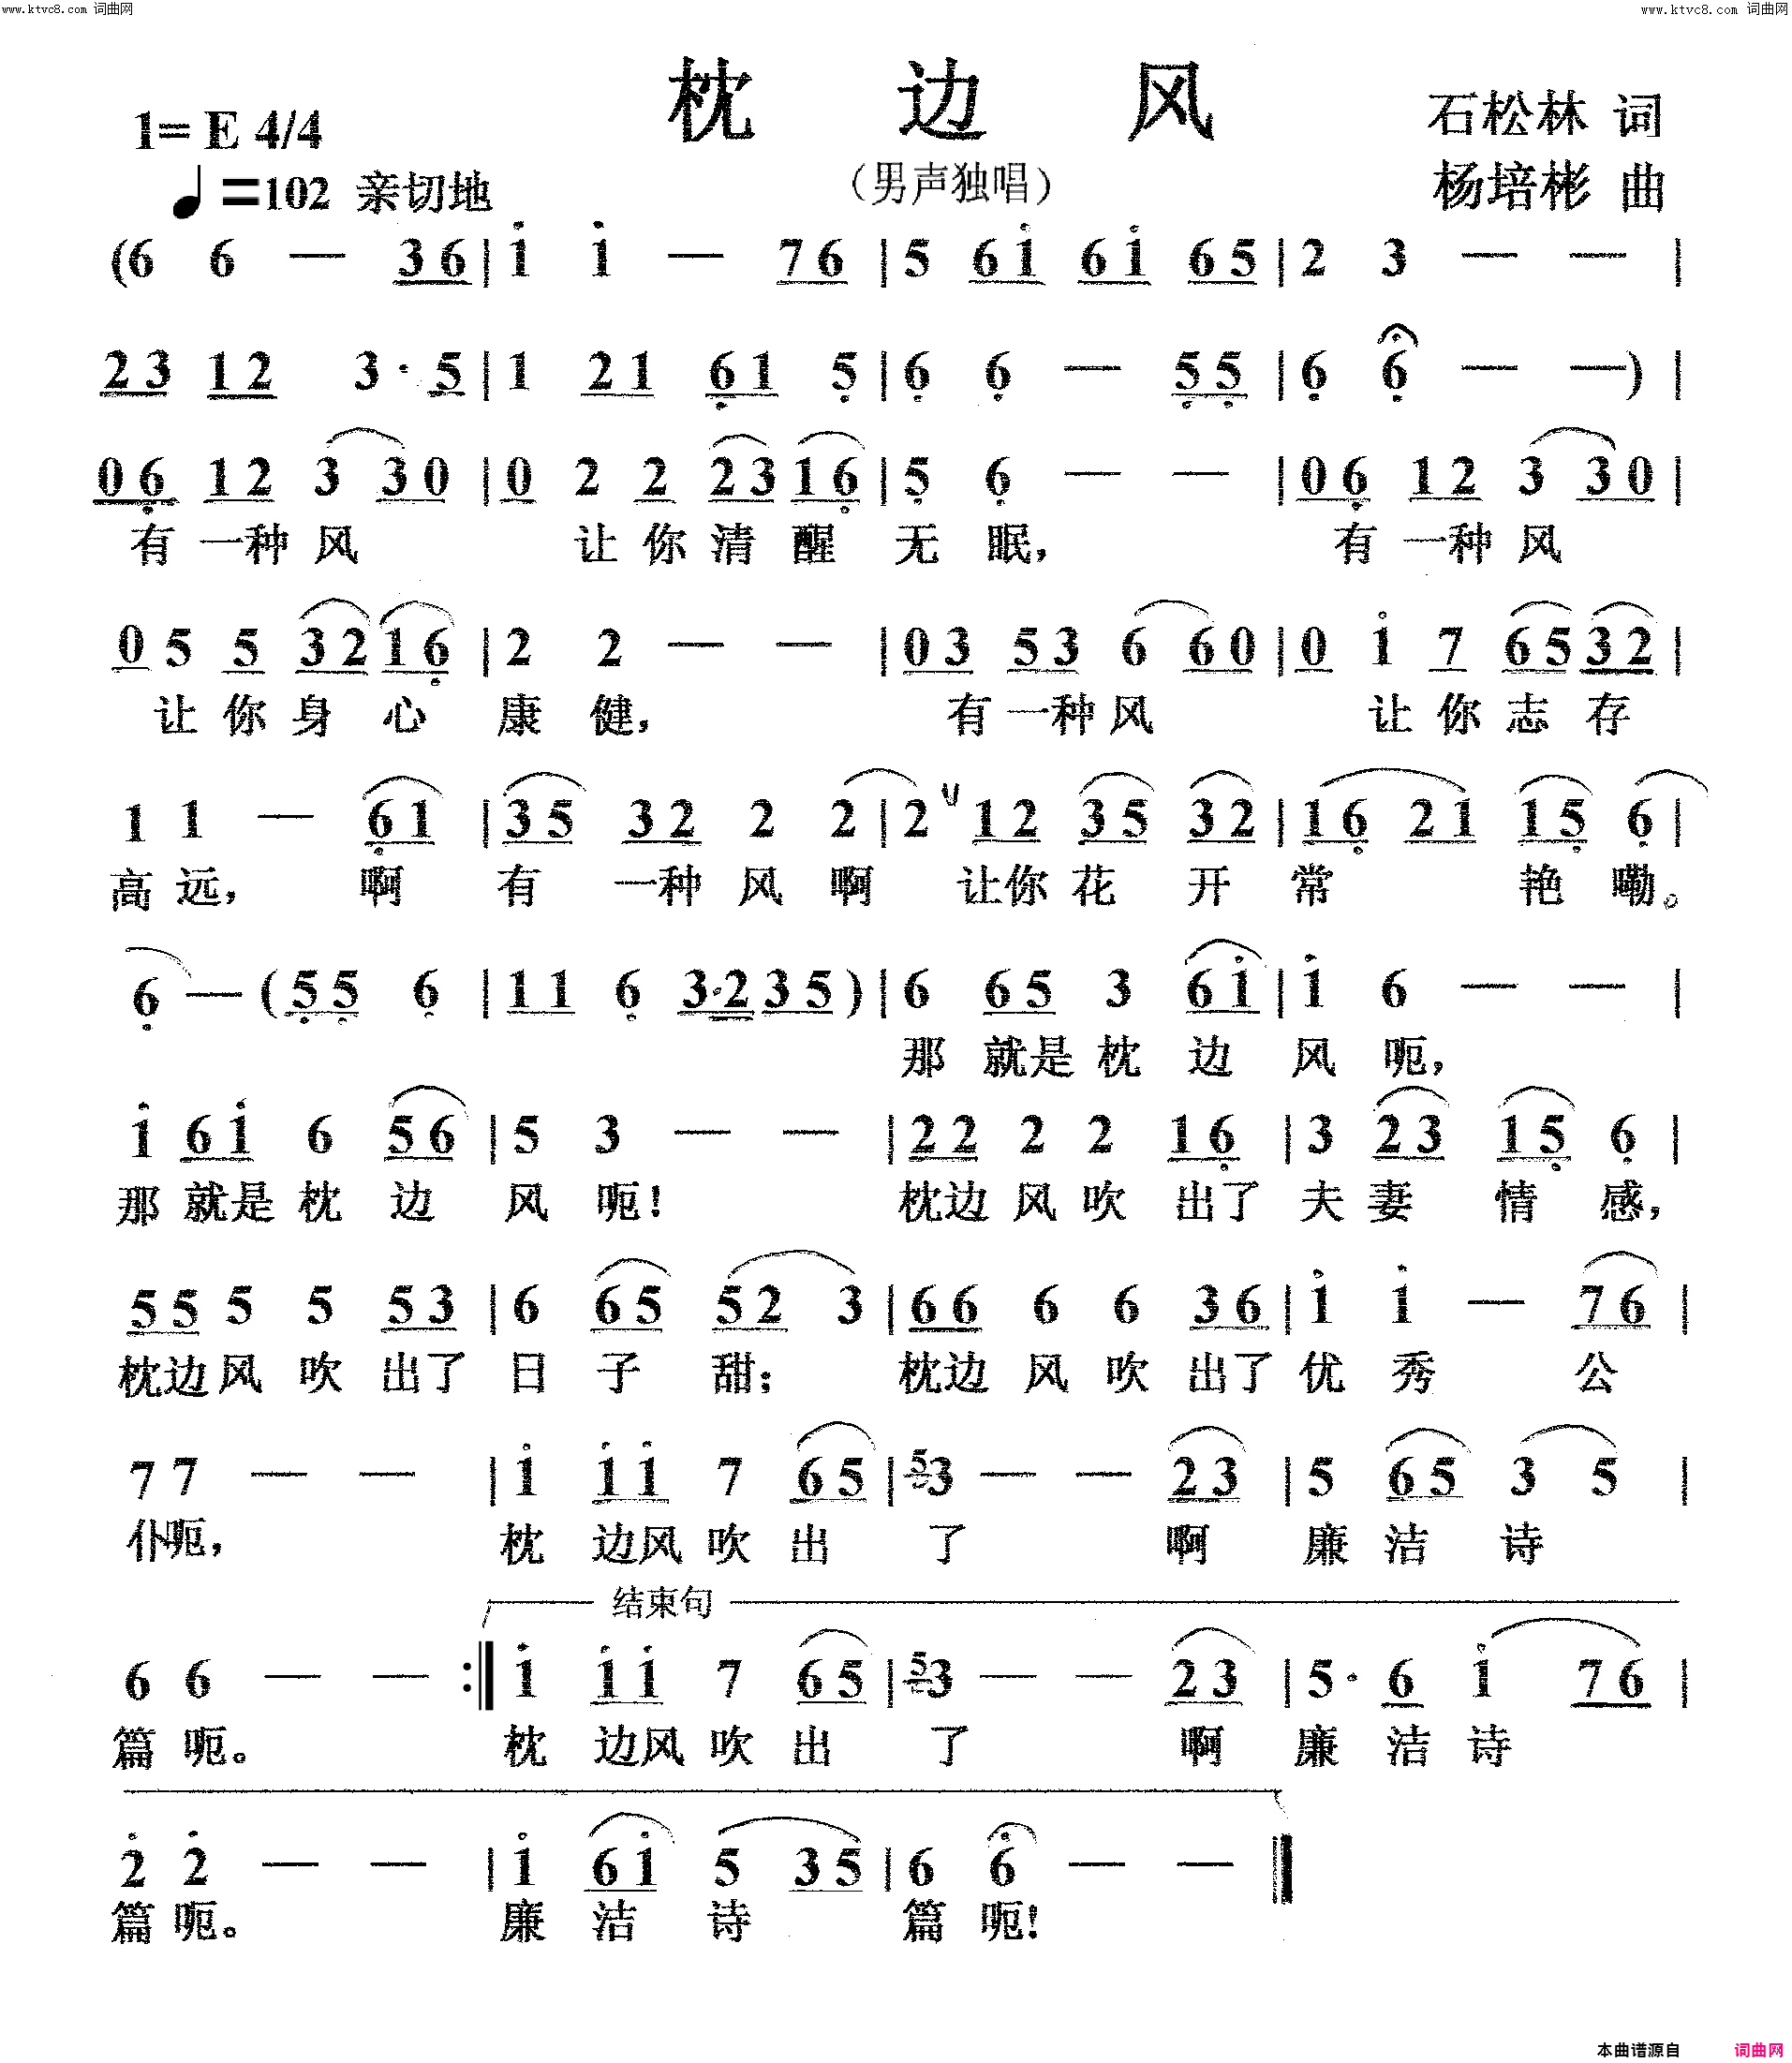 www.ktvc8.com 词曲网
www.ktvc8.com 词曲网
枕 边 风
1= E 4/4
石松林 词
♩=102 亲切地
(男声独唱)
杨培彬 曲
(6 6 — 36 | i i — 76 | 5 6i 6i 65 | 2 3 — — |
23 12 3· 5 | 1 21 61 5 | 6 6 — 55 | 6 6 — —) |
06 12 3 30 | 0 2 2 23 16 | 5 6 — — | 06 12 3 30 |
有 一种 风 让 你 清 醒 无 眠, 有 一种 风
0 5 5 32 16 | 2 2 — — | 03 53 6 60 | 0 i 7 65 32 |
让 你 身 心 康 健, 有 一种 风 让 你 志 存
1 1 — 61 | 35 32 2 2 | 2 12 35 32 | 16 21 15 6 |
高 远, 啊 有 一种 风 啊 让你 花 开 常 艳 嘞。
6 — (55 6 | 11 6 3·2 35) | 6 65 3 6i | i 6 — — |
那 就是 枕 边 风 呃,
i 6i 6 56 | 5 3 — — | 22 2 2 16 | 3 23 15 6 |
那 就是 枕 边 风 呃! 枕边 风 吹 出了 夫 妻 情 感,
55 5 5 53 | 6 65 52 3 | 66 6 6 36 | i i — 76 |
枕边 风 吹 出了 日 子 甜; 枕边 风 吹 出了 优 秀 公
7 7 — — | i ii 7 65 | 53 — — 23 | 5 65 3 5 |
仆 呃, 枕 边风 吹 出 了 啊 廉 洁 诗
结束句
6 6 — — :‖ i ii 7 65 | 53 — — 23 | 5· 6 i 76 |
篇 呃。 枕 边风 吹 出 了 啊 廉 洁 诗
2 2 — — | i 6i 5 35 | 6 6 — — ‖
篇 呃。 廉 洁 诗 篇 呃!
本曲谱源自 词曲网